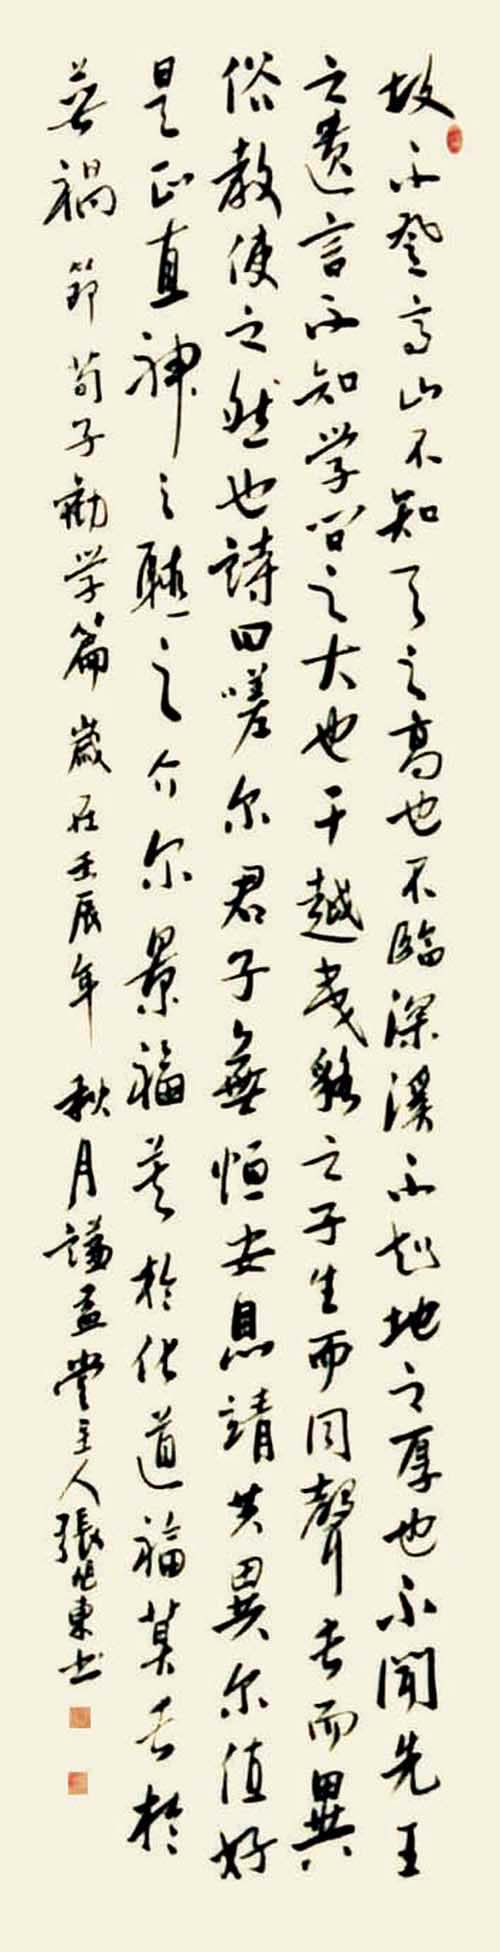 故不登高山不知天之高也不臨深溪不知地之厚也不聞先王
之遺言不知学问之大也干越夷貉之子生而同聲長而異
俗教使之然也詩曰嗟尔君子無恒安息靖共異尔位好
是正直神之聽之介尔景福莫於化道福莫長於
無禍 節荀子勸学篇 歲在壬辰年 秋月謙益堂主人張東书